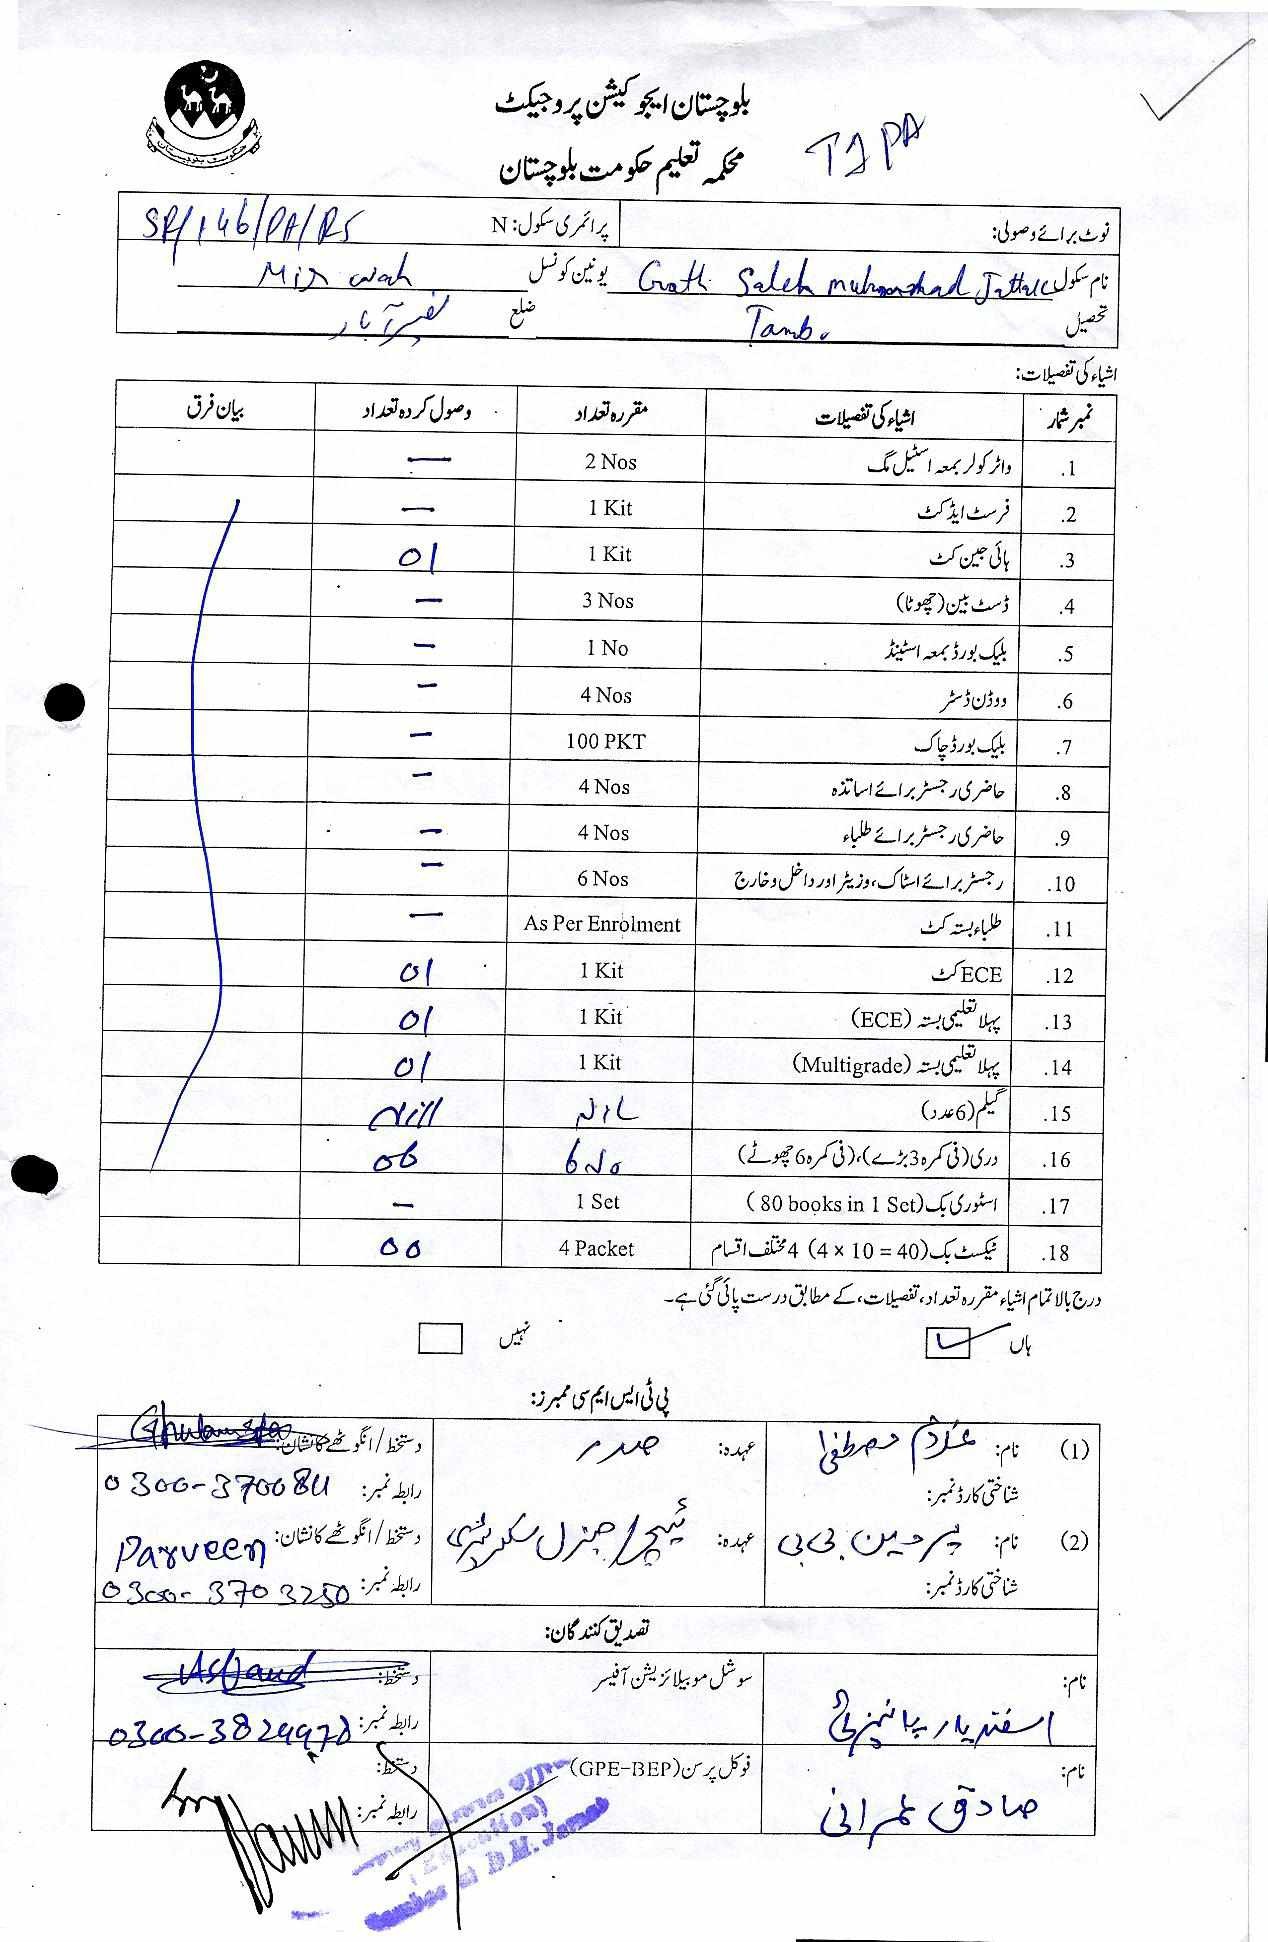 بلوچستان ایجوکیشن پروجیکٹ
محکمہ تعلیم حکومت بلوچستان
TJPA
حکومت بلوچستان
نوٹ برائے وصولی: پرائمری سکول: N SP/146/PA/RS
نام سکول Goth Saleh muhammad Jattak یونین کونسل Mir wah
تحصیل Tambo ضلع نصیر آباد
اشیاء کی تفصیلات:
نمبر شمار اشیاء کی تفصیلات مقررہ تعداد وصول کردہ تعداد بیان فرق
1. واٹر کولر بمعہ اسٹیل مگ 2 Nos —
2. فرسٹ ایڈ کٹ 1 Kit —
3. ہائی جین کٹ 1 Kit 01
4. ڈسٹ بین (چھوٹا) 3 Nos —
5. بلیک بورڈ بمعہ اسٹینڈ 1 No —
6. ووڈن ڈسٹر 4 Nos —
7. بلیک بورڈ چاک 100 PKT —
8. حاضری رجسٹر برائے اساتذہ 4 Nos —
9. حاضری رجسٹر برائے طلباء 4 Nos —
10. رجسٹر برائے اسٹاک، وزیٹر اور داخل و خارج 6 Nos —
11. طلباء بستہ کٹ As Per Enrolment —
12. ECE کٹ 1 Kit 01
13. پہلا تعلیمی بستہ (ECE) 1 Kit 01
14. پہلا تعلیمی بستہ (Multigrade) 1 Kit 01
15. گیلم (6 عدد) NIL Nill
16. دری (فی کمرہ 3 بڑے)، (فی کمرہ 6 چھوٹے) 6 No 06
17. اسٹوری بک (80 books in 1 Set) 1 Set —
18. ٹیکسٹ بک (4 × 10 = 40) 4 مختلف اقسام 4 Packet 00
درج بالا تمام اشیاء مقررہ تعداد، تفصیلات، کے مطابق درست پائی گئی ہے۔
ہاں نہیں
پی ٹی ایس ایم سی ممبرز:
(1) نام: غلام مصطفیٰ عہدہ: صدر دستخط/انگوٹھے کا نشان:
شناختی کارڈ نمبر: رابطہ نمبر: 0300-3700811
(2) نام: پروین بی بی عہدہ: ٹیچر/جنرل سکریٹری دستخط/انگوٹھے کا نشان: Parveen
شناختی کارڈ نمبر: رابطہ نمبر: 0300-3703250
تصدیق کنندگان:
نام: سوشل موبیلائزیشن آفیسر دستخط:
اسفندیار رابطہ نمبر: 0300-3829978
نام: فوکل پرسن (GPE-BEP) دستخط:
صادق عمرانی رابطہ نمبر:
(Education)